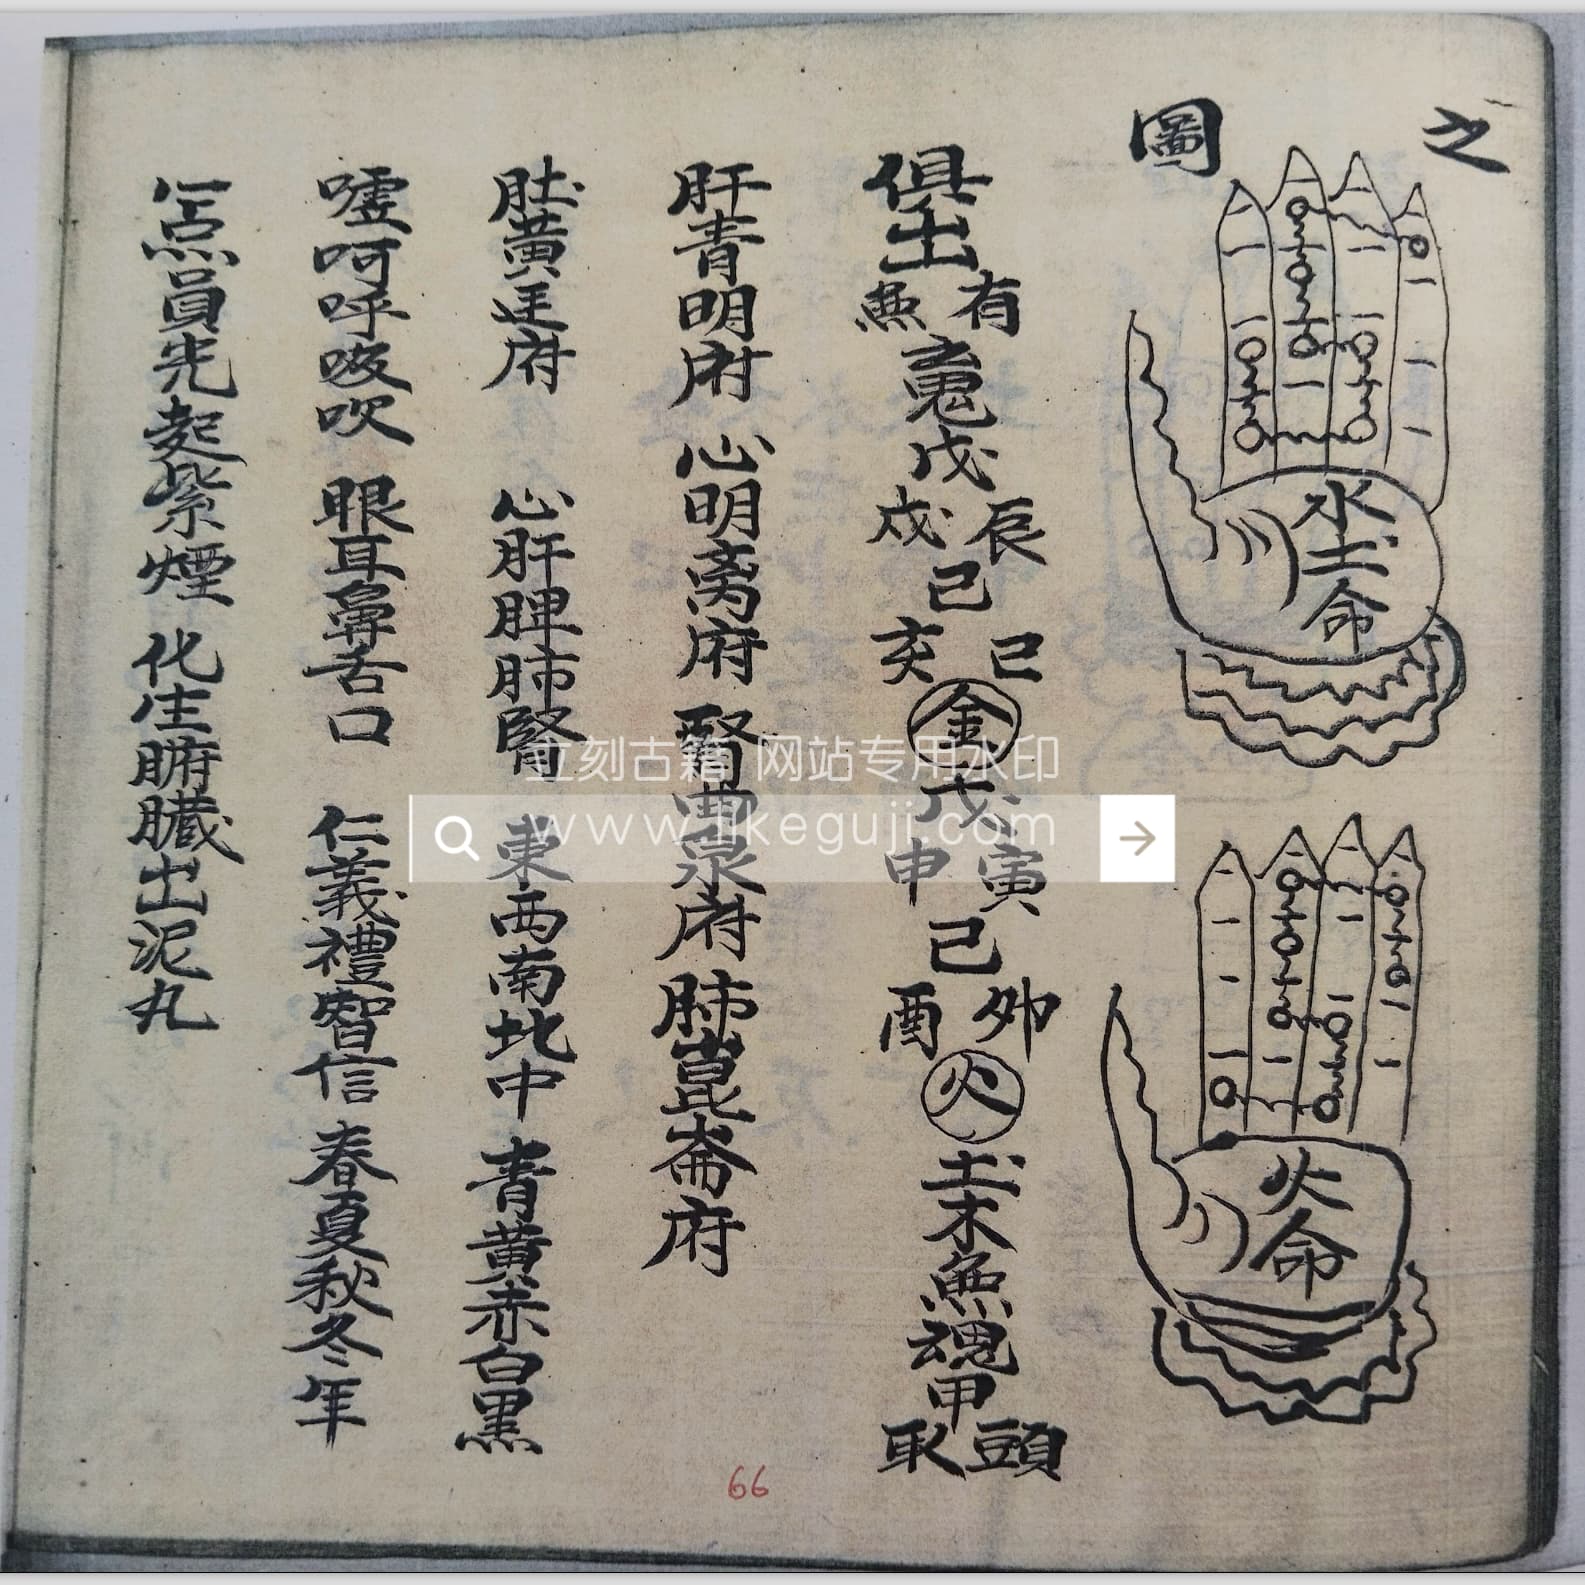 之
圖
水土命
火命
俱出有無竟戊辰戌己巳亥金戊寅申己卯酉火土木無魂甲頭取
肝青明府 心明离府 腎曲泉府 肺崑崙府
肚黄廷府 心肝脾肺腎 東西南北中 青黄赤白黑
嘘呵呼吸吹 眼耳鼻舌口 仁義禮智信 春夏秋冬年
一点員光起紫煙 化生腑臟出泥丸
66
立刻古籍 网站专用水印
www.likeguji.com